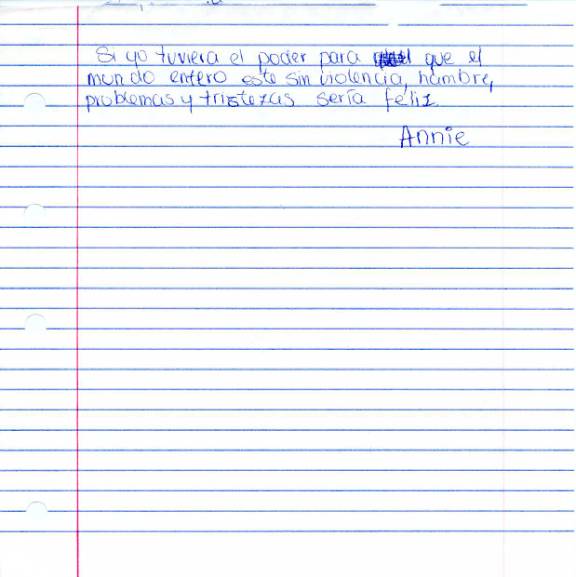 Si yo tuviera el poder para que el
mundo entero este sin violencia, hambre,
problemas y tristezas sería feliz
Annie